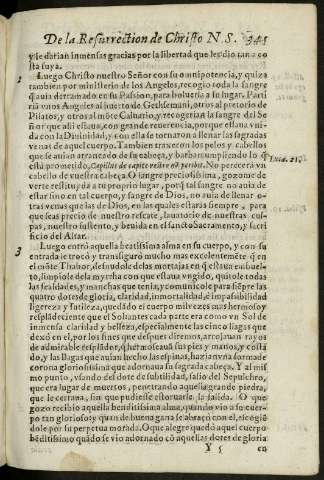 De la Resurrection de Christo N.S. 345
y le darian inmensas gracias por la libertad que les dio tan a co
sta suya.
2 Luego Christo nuestro Señor con su omnipotencia, y quiza
tambien por ministerio de los Angeles, recogio toda la sangre
q̃ auia derramado en su Passion, para boluerla a su lugar. Parti
riã vnos Angeles al huerto de Gethsemani, otros al pretorio de
Pilatos, y otros al mõte Caluario, y recogerian la sangre del Se
ñor que alli estaua, con grande reuerencia, porque estaua vni-
da con la Diuinidad, y con ella se tornaron a llenar las sagradas
venas de aquel cuerpo. Tambien traxeron los pelos y cabellos
que se auian arrancado de su cabeça, y barba: cumpliendo lo q̃
està prometido, Capillus de capite vestro nõ peribit. No perecerà vn
Lucæ. 21.
cabello de vuestra cabeça. O sangre preciosissima, gozome de
verte restituyda a tu proprio lugar, porq̃ tal sangre no auia de
estar sino en tal cuerpo, y sangre de Dios, no auia de llenar o-
tras venas que las de Dios, en las quales estaràs siempre, para
que seas precio de nuestro rescate, lauatorio de nuestras cul-
pas, nuestro sustento, y beuida en el sancto Sacramento, y sacri
ficio del Altar.
3 Luego entrò aquella beatissima alma en su cuerpo, y con su
entrada le trocò y transfigurò mucho mas excelentemẽte q̃ en
el mõte Thabor, desnudole de las mortajas en q̃ estaua embuel-
to, limpiole de la myrrha con que estaua vngido, quitole todas
las fealdades, y manchas que tenia, y comunicole para siẽpre las
quatro dotes de gloria, claridad, inmortalidad, e impasibilidad
ligereza y sutileza, quedado el cuerpo mil vezes mas hermoso y
resplãdeciente que el Sol: antes cada parte era como vn Sol de
inmensa claridad y belleza, especialmente las cinco llagas que
dexò en el, por los fines que despues diremos, arrojauan rayos
de admirable resplãdor, q̃ hermoseauã sus pies y manos, y costa
do, y las llagas que auian hecho las espinas, haziã vna forma de
corona gloriosissima que adornaua su sagrada cabeça. Y al mis
mo punto, vsando del dote de subtilidad, salio del Sepulchro,
que era lugar de muertos, penetrando aquella grande piedra,
que le cerraua, sin que pudiesse estoruarle la salida. O que
gozo recibio aquella benditissima alma, quando vio a su cuer-
po tan glorioso: y quan de buena gana se abraçò con el, escogiẽ
dole por su perpetua morada. O que alegre quedò aquel cuerpo
bẽditissimo quãdo se vio adornado cõ aquellas dotes de gloria
Y 5 en